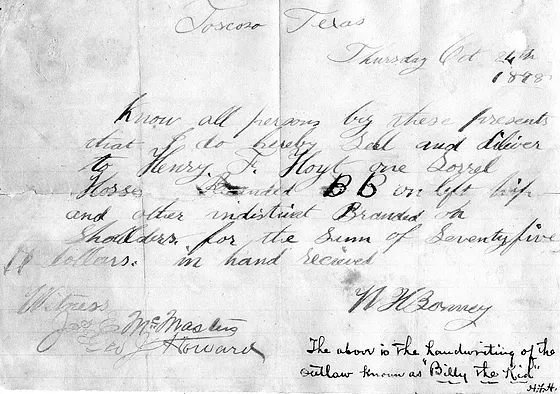 Toscoso Texas
Thursday Oct 24th
1878
Know all persons by these presents
that I do hereby Sell and diliver
to Henry. F. Hoyt one Sorrel
Horse Branded BB on left hip
and other indistinct Branded on
Shoulders. for the Sum of Seventyfive
$ dollars. in hand recieved
W HBonney
Witness
Jas. E. McMasters
Geo. J. Howard
The above is the handwriting of the
outlaw known as "Billy the Kid"
H.F.H.